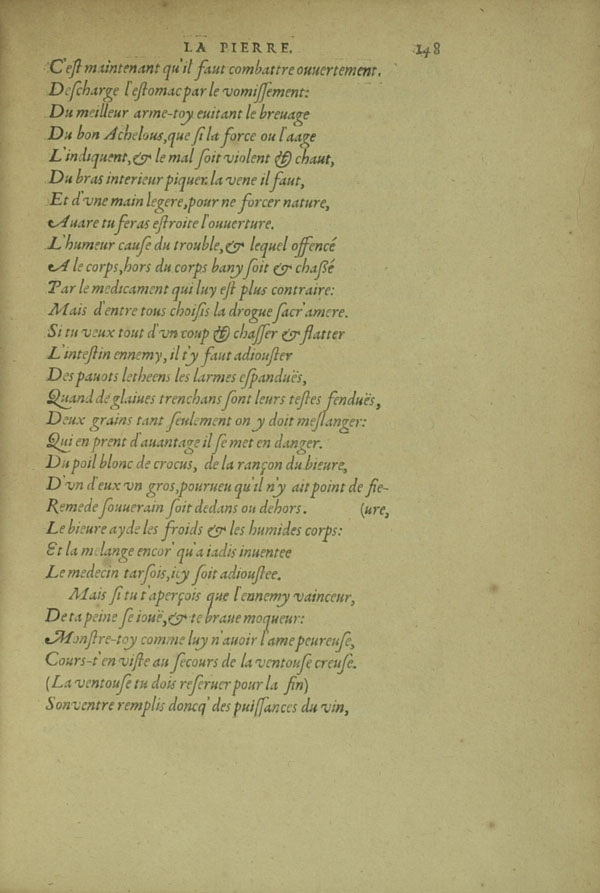 LA PIERRE. 148
C'est maintenant qu'il faut combattre ouuertement.
Descharge l'estomac par le vomissement:
Du meilleur arme-toy euitant le breuage
Du bon Achelous, que si la force ou l'aage
L'indiquent, & le mal soit violent & chaut,
Du bras interieur piquer la vene il faut,
Et d'vne main legere, pour ne forcer nature,
Auare tu feras estroite l'ouuerture.
L'humeur cause du trouble, & lequel offencé
A le corps, hors du corps bany soit & chassé
Par le medicament qui luy est plus contraire:
Mais d'entre tous choisis la drogue sacr'amere.
Si tu veux tout d'vn coup & chasser & flatter
L'intestin ennemy, il t'y faut adiouster
Des pauots letheens les larmes espanduës,
Quand de glaiues trenchans sont leurs testes fenduës,
Deux grains tant seulement on y doit meslanger:
Qui en prent d'auantage il se met en danger.
Du poil blonc de crocus, de la rançon du bieure,
D'vn d'eux vn gros, pourueu qu'il n'y ait point de fie-
Remede souuerain soit dedans ou dehors. (ure,
Le bieure ayde les froids & les humides corps:
Et la melange encor' qu'a iadis inuentee
Le medecin tarsois, icy soit adioustee.
Mais si tu t'aperçois que l'ennemy vainceur,
De ta peine se iouë, & te braue moqueur:
Monstre-toy comme luy n'auoir l'ame peureuse,
Cours-t'en viste au secours de la ventouse creuse.
(La ventouse tu dois reseruer pour la fin)
Son ventre remplis doncq' des puissances du vin,